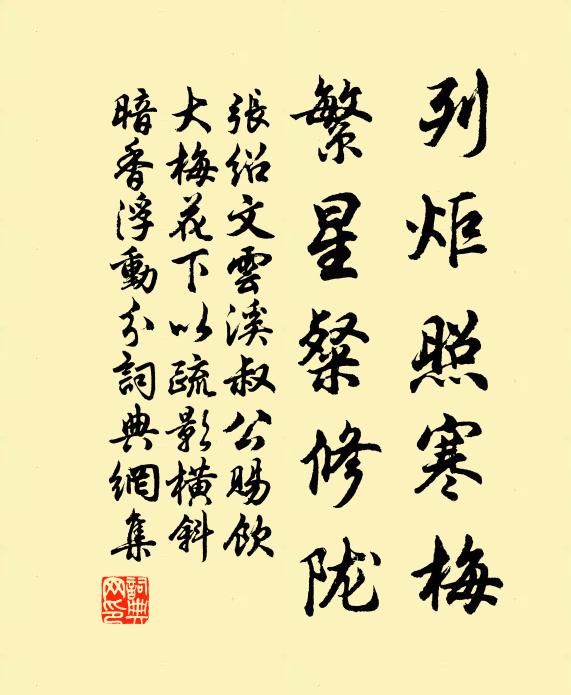 列炬照寒梅
繁星粲修陇
張紹文雲溪叔公賜飲
大梅花下以疏影橫斜
暗香浮動分詞典網集
詞典
网印